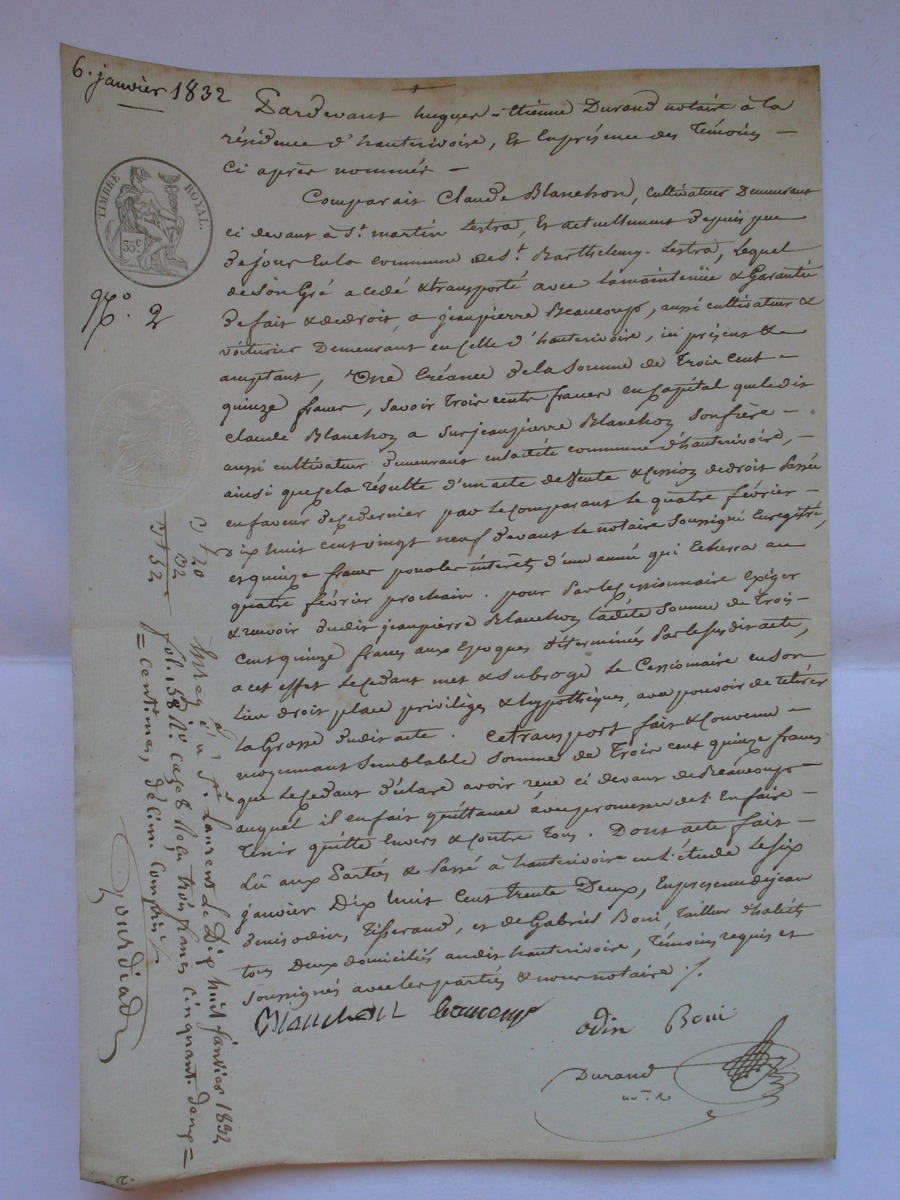 6. janvier 1832
TIMBRE ROYAL.
35 c
No. 2
Pardevant hugues-étienne Durand notaire à la
résidence d'hauterivoire, Et En présence des Témoins
ci après nommés
Comparait Claude Blanchon, cultivateur Demeurant
ci devant à St. martin Lestra, Et actuellement depuis peu
de jours En la commune de St. Barthelemy-Lestra, Lequel
de son Gré a cédé & transporté avec La maintenüe & Garantie
de fait & de droit, a jeanpierre Beaucoup, aussi cultivateur &
voiturier Demeurant en celle d'hauterivoire, ici présent &
acceptant, Une Créance de la Somme de Trois Cent
quinze francs, savoir Trois cents francs en capital que le dit
Claude Blanchon a sur jeanpierre Blanchon son frère
aussi cultivateur demeurant en la dite commune d'hauterivoire,
ainsi que cela résulte d'un acte de Vente & cession de droit Passée
en faveur de ce dernier par le comparant le quatre février
Dix huit cent vingt neuf devant le notaire soussigné Enregistré,
et quinze francs pour les intérêts d'une année qui Echerra au
quatre février prochain. pour Par le Cessionnaire exiger
& recevoir dudit jeanpierre Blanchon Ladite Somme de Trois
cent quinze francs aux Epoques déterminés Par le susdit acte,
a cet effet le cédant met & subroge Le Cessionaire en son
Lieu droit place privilèges & hypothèques, avec pouvoir de retirer
La Grosse dudit acte. Ce transport fait & Convenu
moyennant semblable somme de Trois cent quinze francs
que le cédant déclare avoir reçu ci devant de Beaucoup
auquel il en fait quittance avec promesse de l'En faire
Tenir quitte Envers & contre Tous. Dont acte fait
Lû aux Parties & Passé à hauterivoire en l'étude Le six
janvier Dix huit Cent trente Deux, En présence de jean
denis odin, Tisserand, et de Gabriel Boni, Tailleur d'habits
tous Deux domiciliés audit hauterivoire, Témoins requis et
soussignés avec les parties & nous notaire ./.
Blanchon beaucoup
odin Boni
Durand
Enreg. à St. Laurent Le Dix huit janvier 1832
fol. 158 Ro. case 8 Reçu trois francs cinquante deux
centimes, décime compris.
Gourdiad